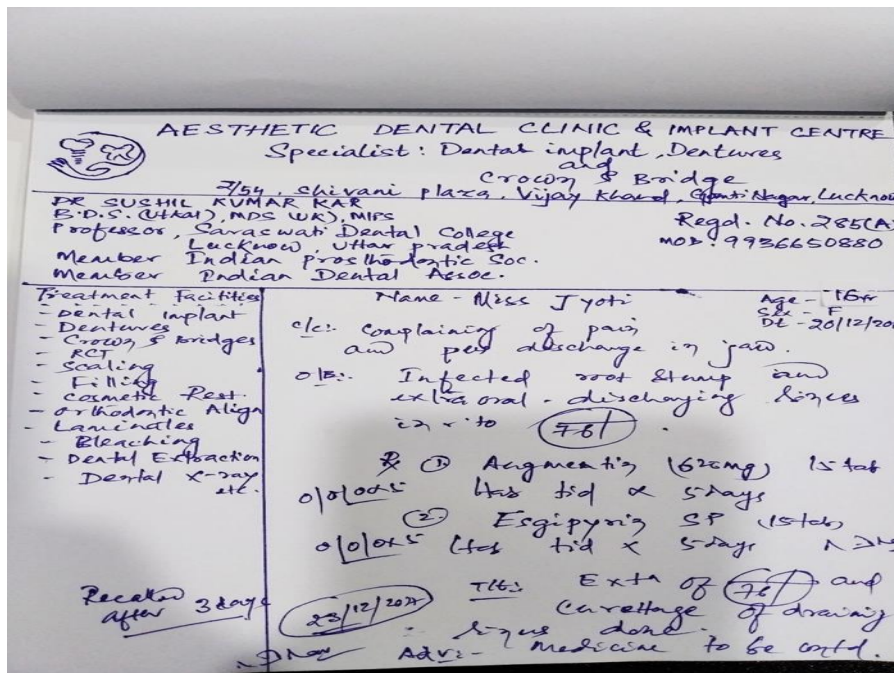 AESTHETIC DENTAL CLINIC & IMPLANT CENTRE
Specialist: Dental implant, Dentures
and
Crown & Bridge
2/54, Shivani plaza, Vijay Khand, Gomti Nagar, Lucknow
DR SUSHIL KUMAR KAR
B.D.S. (Utkal), MDS (UK), MIPS
Professor, Saraswati Dental College
Lucknow, Uttar pradesh
Member Indian prosthodontic Soc.
Member Indian Dental Assoc.
Regd. No. 285(A)
MOB: 9936650880
Treatment Facilities
- Dental implant
- Dentures
- Crown & Bridges
- RCT
- Scaling
- Filling
- Cosmetic Rest.
- Orthodontic Align
- Laminates
- Bleaching
- Dental Extraction
- Dental X-ray
etc.
Recalled
after 3 days
Name - Miss Jyoti
Age - 16yr
Sex - F
Dt - 20/12/20
c/c:- Complaining of pain
and pus discharge in jaw.
O/E:- Infected root stump and
extra oral - discharging sinus
in r to 76|.
Rx ① Augmentin (625mg) 15 tab
1tab tid x 5days
② Esgipyrin SP (15tab)
1tab tid x 5days
23/12/20
Ttt:- Extn of 76| and
Curettage of draining
sinus done.
Adv:- Medicine to be contd.